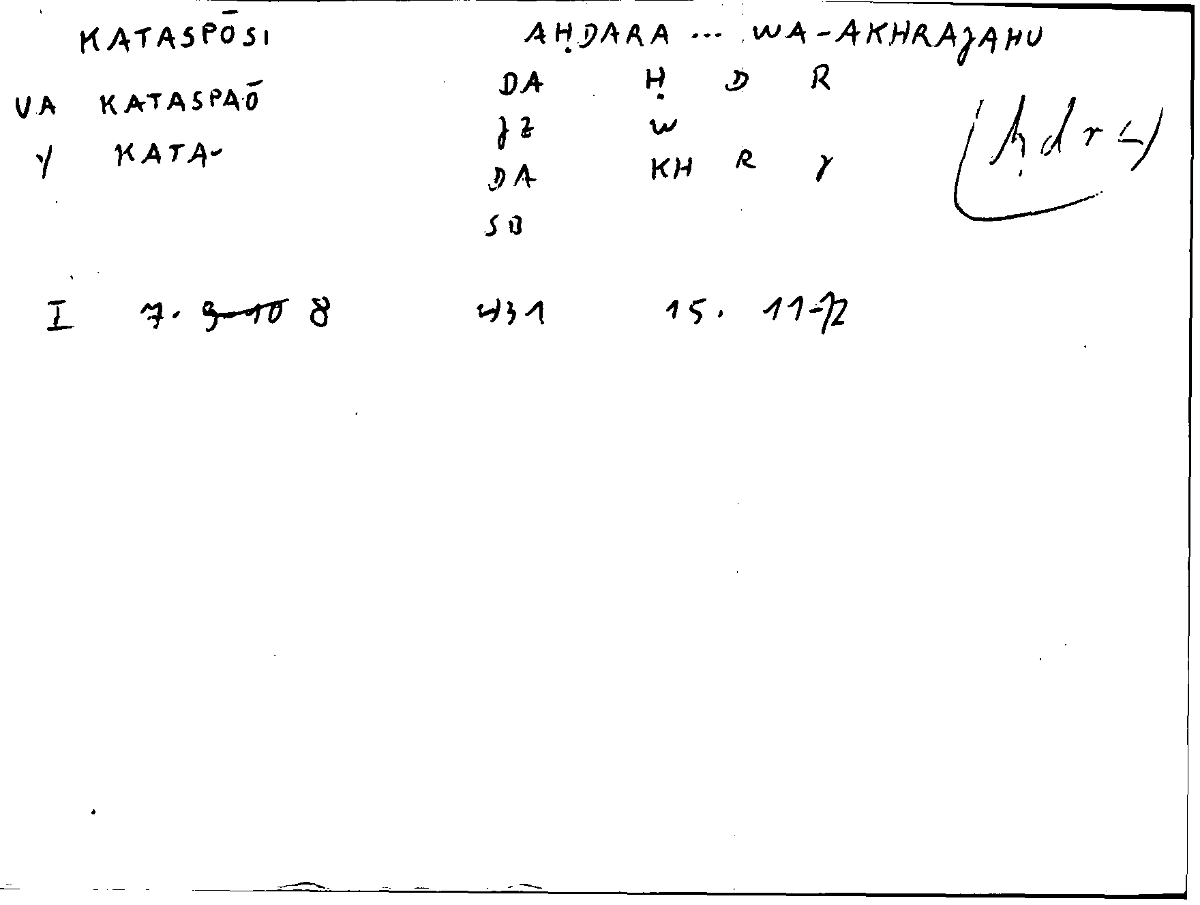 KATASPŌSI AḤDARA ... WA-AKHRAJAHU
VA KATASPAŌ DA Ḥ D R
Y KATA- JZ W
DA KH R J
SB
ḥdr
I 7. 9-10 8 431 15. 11-12